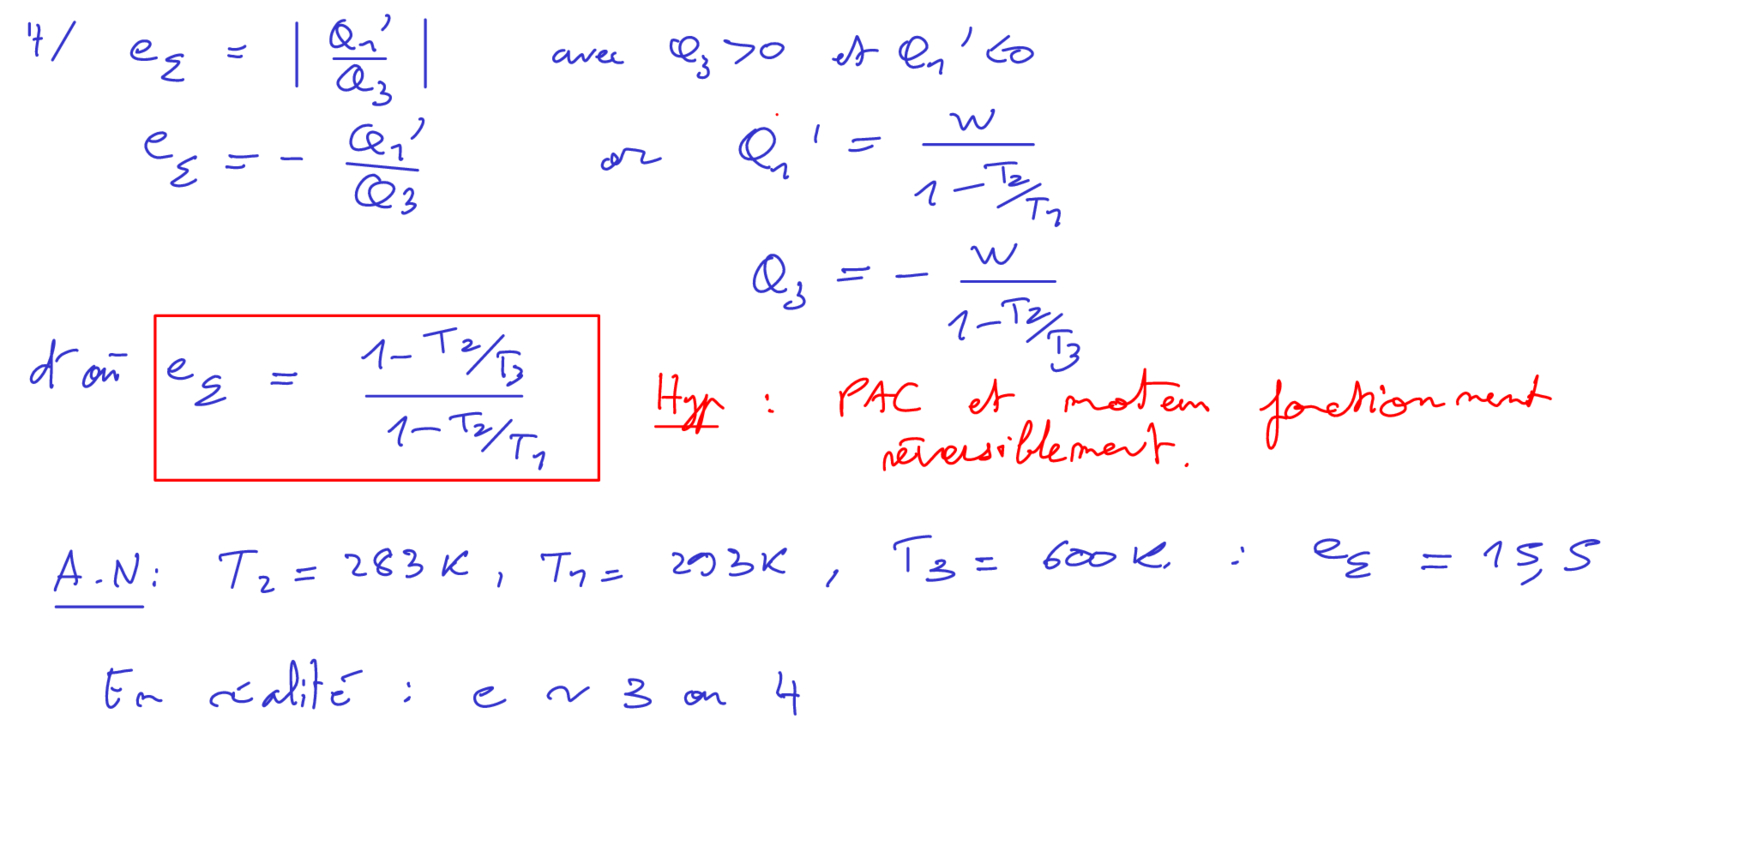 4/ e_Σ = | Q₁' / Q₃ | avec Q₃ > 0 et Q₁' < 0
e_Σ = - Q₁' / Q₃ or Q₁' = W / (1 - T₂/T₁)
Q₃ = - W / (1 - T₂/T₃)
d'où e_Σ = (1 - T₂/T₃) / (1 - T₂/T₁)
Hyp : PAC et moteur fonctionnent
réversiblement.
A.N : T₂ = 283 K, T₁ = 293 K, T₃ = 600 K. : e_Σ = 15,5
En réalité : e ~ 3 ou 4